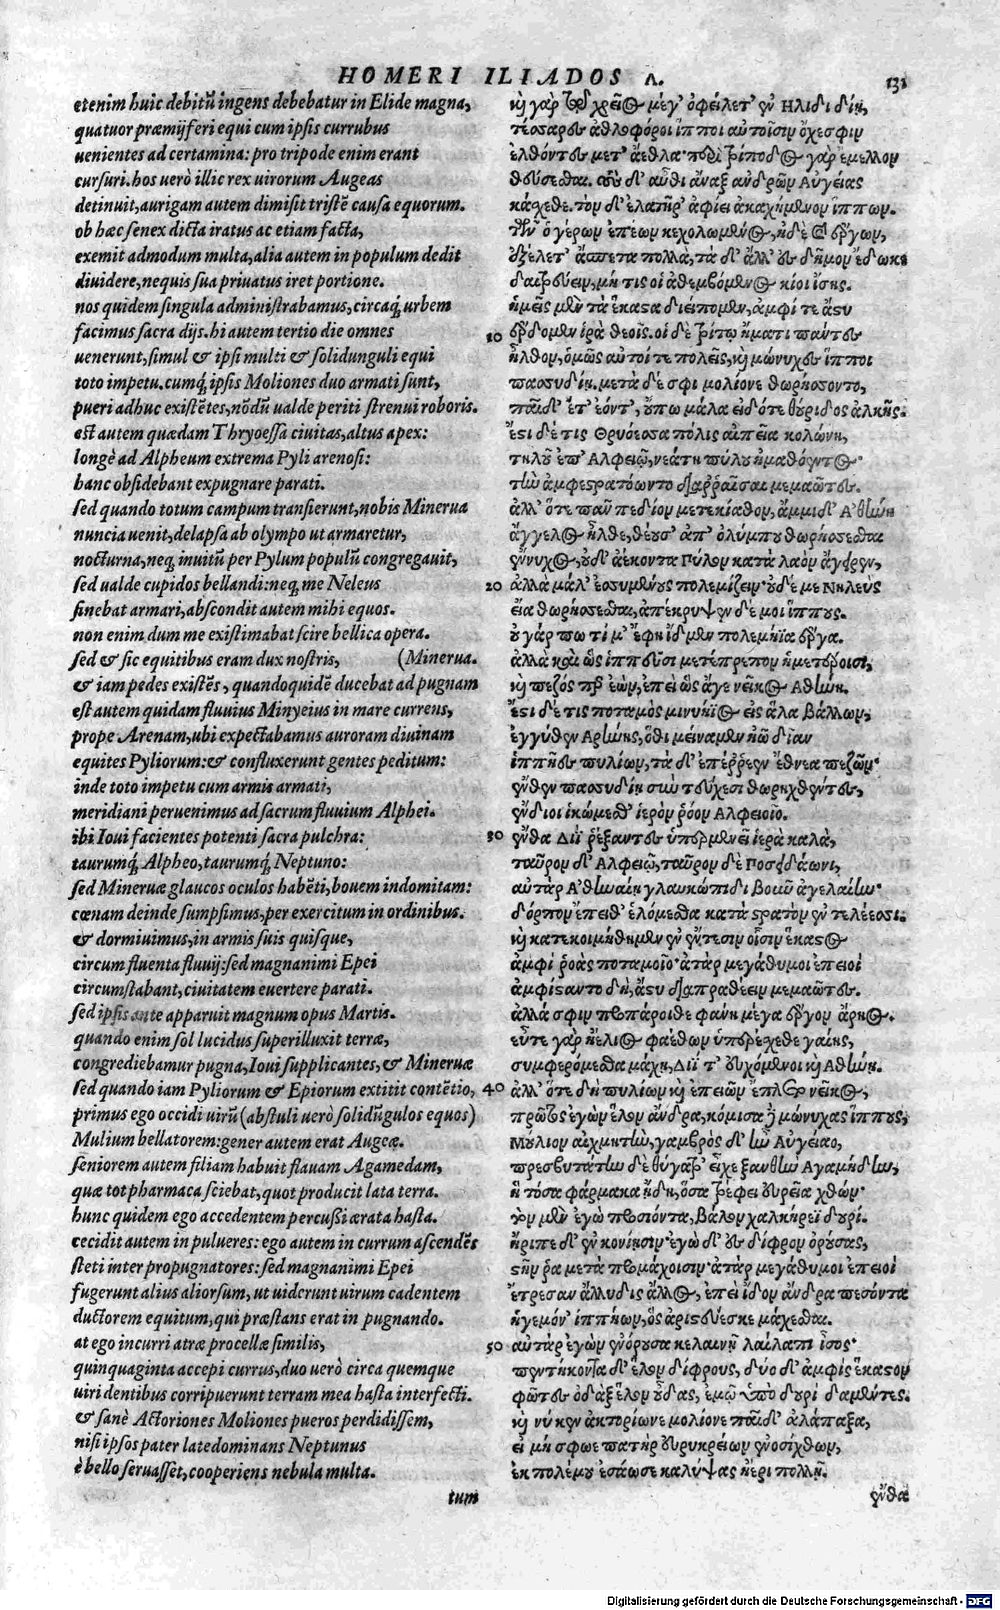 HOMERI ILIADOS Λ. 131
etenim huic debitū ingens debebatur in Elide magna,
quatuor præmijferi equi cum ipsis curribus
uenientes ad certamina: pro tripode enim erant
cursuri. hos uerò illic rex uirorum Augeas
detinuit, aurigam autem dimisit tristē causa equorum.
ob hæc senex dicta iratus ac etiam facta,
exemit admodum multa, alia autem in populum dedit
diuidere, nequis sua priuatus iret portione.
nos quidem singula administrabamus, circaq́; urbem
facimus sacra dijs. hi autem tertio die omnes
uenerunt, simul & ipsi multi & solidunguli equi
toto impetu. cumq́; ipsis Moliones duo armati sunt,
pueri adhuc existētes, nōdū ualde periti strenui roboris.
est autem quædam Thryoessa ciuitas, altus apex:
longè ad Alpheum extrema Pyli arenosi:
hanc obsidebant expugnare parati.
sed quando totum campum transierunt, nobis Minerua
nuncia uenit, delapsa ab olympo ut armaretur,
nocturna, neq; inuitū per Pylum populū congregauit,
sed ualde cupidos bellandi: neq; me Neleus
sinebat armari, abscondit autem mihi equos.
non enim dum me existimabat scire bellica opera.
sed & sic equitibus eram dux nostris, (Minerua.
& iam pedes existēs, quandoquidē ducebat ad pugnam
est autem quidam fluuius Minyeius in mare currens,
prope Arenam, ubi expectabamus auroram diuinam
equites Pyliorum: & confluxerunt gentes peditum:
inde toto impetu cum armis armati,
meridiani peruenimus ad sacrum fluuium Alphei.
ibi Ioui facientes potenti sacra pulchra:
taurumq́; Alpheo, taurumq́; Neptuno:
sed Mineruæ glaucos oculos habēti, bouem indomitam:
cœnam deinde sumpsimus, per exercitum in ordinibus.
& dormiuimus, in armis suis quisque,
circum fluenta fluuij: sed magnanimi Epei
circumstabant, ciuitatem euertere parati.
sed ipsis ante apparuit magnum opus Martis.
quando enim sol lucidus superilluxit terræ,
congrediebamur pugna, Ioui supplicantes, & Mineruæ
sed quando iam Pyliorum & Epiorum extitit contētio,
primus ego occidi uirū (abstuli uerò solidūgulos equos)
Mulium bellatorem: gener autem erat Augeæ.
seniorem autem filiam habuit flauam Agamedam,
quæ tot pharmaca sciebat, quot producit lata terra.
hunc quidem ego accedentem percußi ærata hasta.
cecidit autem in pulueres: ego autem in currum ascendēs
steti inter propugnatores: sed magnanimi Epei
fugerunt alius aliorsum, ut uiderunt uirum cadentem
ductorem equitum, qui præstans erat in pugnando.
at ego incurri atræ procellæ similis,
quinquaginta accepi currus, duo uerò circa quemque
uiri dentibus corripuerunt terram mea hasta interfecti.
& sanè Actoriones Moliones pueros perdidissem,
nisi ipsos pater latedominans Neptunus
è bello seruasset, cooperiens nebula multa.
tum
καὶ γὰρ τῷ χρεῖος μέγ' ὀφείλετ' ἐν Ηλιδι δίῃ,
τέσσαρες ἀθλοφόροι ἵπποι αὐτοῖσιν ὄχεσφιν
ἐλθόντες μετ' ἄεθλα· περὶ τρίποδος γὰρ ἔμελλον
θεύσεσθαι. τοὺς δ' αὖθι ἄναξ ἀνδρῶν Αὐγείας
κάσχεθε. τὸν δ' ἐλατῆρ' ἀφίει ἀκαχήμενον ἵππων.
τῶν ὁ γέρων ἐπέων κεχολωμένος, ἠδὲ καὶ ἔργων,
ἐξέλετ' ἄσπετα πολλὰ, τὰ δ' ἄλλ' ἐς δῆμον ἔδωκε
δαιτρεύειν, μή τις οἱ ἀτεμβόμενος κίοι ἴσης.
ἡμεῖς μὲν τὰ ἕκαστα διείπομεν, ἀμφί τε ἄστυ
10 ἔρδομεν ἱρὰ θεοῖς. οἱ δὲ τρίτῳ ἤματι πάντες
ἦλθον, ὁμῶς αὐτοί τε πολεῖς, καὶ μώνυχες ἵπποι
πασσυδίῃ. μετὰ δέ σφι μολίονε θωρήσσοντο,
παῖδ' ἔτ' ἐόντ', οὔπω μάλα εἰδότε θούριδος ἀλκῆς.
ἔστι δέ τις Θρυόεσσα πόλις αἰπεῖα κολώνη,
τηλοῦ ἐπ' Αλφειῷ, νεάτη πύλου ἠμαθόεντος·
τὴν ἀμφεστρατόωντο διαῤῥαῖσαι μεμαῶτες.
ἀλλ' ὅτε πᾶν πεδίον μετεκίαθον, ἄμμι δ' Αθήνη
ἄγγελος ἦλθε, θέουσ' ἀπ' ὀλύμπου θωρήσσεσθαι
ἔννυχος, οὐδ' ἀέκοντα Πύλον κατὰ λαὸν ἄγειρεν,
20 ἀλλὰ μάλ' ἐσσυμένους πολεμίζειν· οὐδέ με Νηλεὺς
εἴα θωρήσσεσθαι, ἀπέκρυψεν δέ μοι ἵππους.
οὐ γάρ πώ τί μ' ἔφη ἴδμεν πολεμήϊα ἔργα.
ἀλλὰ καὶ ὣς ἱππεῦσι μετέπρεπον ἡμετέροισι,
καὶ πεζός περ ἐὼν, ἐπεὶ ὣς ἄγε νεῖκος Αθήνη.
ἔστι δέ τις ποταμὸς μινυήϊος εἰς ἅλα βάλλων,
ἐγγύθεν Αρήνης, ὅθι μείναμεν ἠῶ δῖαν
ἱππῆες πυλίων, τὰ δ' ἐπέῤῥεεν ἔθνεα πεζῶν·
ἔνθεν πασσυδίῃ σὺν τεύχεσι θωρηχθέντες,
ἔνδιοι ἱκόμεσθ' ἱερὸν ῥόον Αλφειοῖο.
30 ἔνθα Διῒ ῥέξαντες ὑπερμενεῖ ἱερὰ καλὰ,
ταῦρον δ' Αλφειῷ, ταῦρον δὲ Ποσειδάωνι,
αὐτὰρ Αθηναίῃ γλαυκώπιδι βοῦν ἀγελαίην·
δόρπον ἔπειθ' ἑλόμεσθα κατὰ στρατὸν ἐν τελέεσσι.
καὶ κατεκοιμήθημεν ἐν ἔντεσιν οἷσιν ἕκαστος
ἀμφὶ ῥοὰς ποταμοῖο· ἀτὰρ μεγάθυμοι ἐπειοὶ
ἀμφίσταντο δὴ, ἄστυ διαπραθέειν μεμαῶτες.
ἀλλά σφιν προπάροιθε φάνη μέγα ἔργον ἄρηος.
εὖτε γὰρ ἠέλιος φαέθων ὑπερέσχεθε γαίης,
συμφερόμεσθα μάχῃ, Διΐ τ' εὐχόμενοι καὶ Αθήνῃ.
40 ἀλλ' ὅτε δὴ πυλίων καὶ ἐπειῶν ἔπλετο νεῖκος,
πρῶτος ἐγὼν ἕλον ἄνδρα, κόμισα δὲ μώνυχας ἵππους,
Μούλιον αἰχμητὴν, γαμβρὸς δ' ἦν Αὐγείαο,
πρεσβυτάτην δὲ θύγατρ' εἶχε ξανθὴν Αγαμήδην,
ἣ τόσα φάρμακα ᾔδη, ὅσα τρέφει εὐρεῖα χθών·
τὸν μὲν ἐγὼ προσιόντα, βάλον χαλκήρεϊ δουρί.
ἤριπε δ' ἐν κονίῃσιν· ἐγὼ δ' ἐς δίφρον ὀρούσας,
στῆν ῥα μετὰ προμάχοισιν· ἀτὰρ μεγάθυμοι ἐπειοὶ
ἔτρεσαν ἄλλυδις ἄλλος, ἐπεὶ ἴδον ἄνδρα πεσόντα
ἡγεμόν' ἱππήων, ὃς ἀριστεύεσκε μάχεσθαι.
50 αὐτὰρ ἐγὼν ἐνόρουσα κελαινῇ λαίλαπι ἶσος·
πεντήκοντα δ' ἕλον δίφρους, δύο δ' ἀμφὶς ἕκαστον
φῶτες ὀδὰξ ἕλον οὖδας, ἐμῷ ὑπὸ δουρὶ δαμέντες.
καὶ νύ κεν ἀκτορίωνε μολίονε παῖδ' ἀλάπαξα,
εἰ μή σφωε πατὴρ εὐρυκρείων ἐνοσίχθων,
ἐκ πολέμου ἐσάωσε καλύψας ἠέρι πολλῇ.
ἔνθα
Digitalisierung gefördert durch die Deutsche Forschungsgemeinschaft - DFG